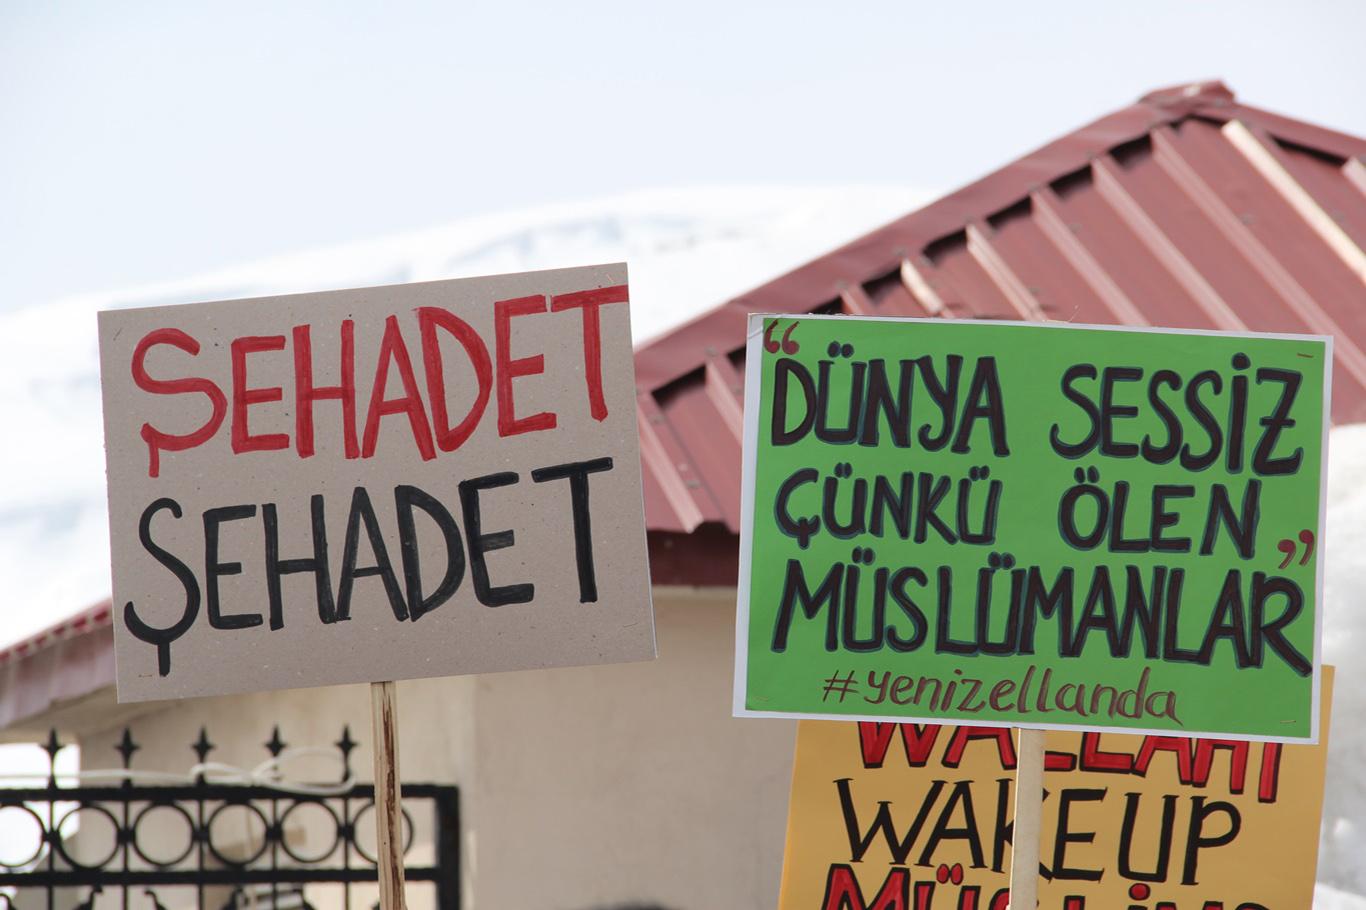 ŞEHADET
ŞEHADET
“DÜNYA SESSİZ
ÇÜNKÜ ÖLEN
MÜSLÜMANLAR”
#yenizellanda
WALLAHI
WAKE UP